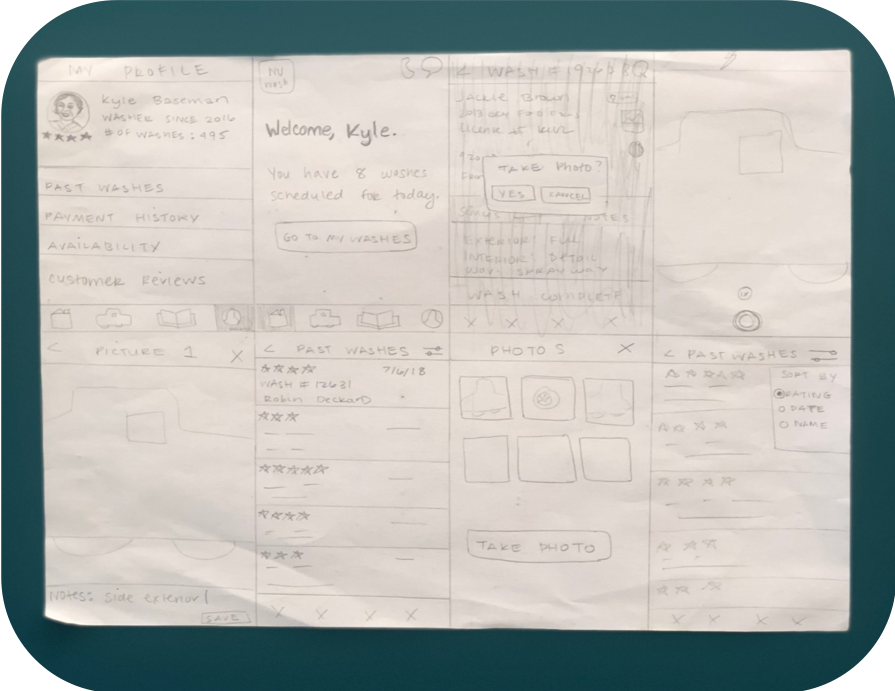 MY PROFILE
Kyle Baseman
WASHER SINCE 2016
# OF WASHES: 495
PAST WASHES
PAYMENT HISTORY
AVAILABILITY
Customer Reviews
NU
wash
Welcome, Kyle.
You have 8 washes
scheduled for today.
GO TO MY WASHES
< WASH #
Jackie Brown
TAKE Photo?
YES
CANCEL
NOTES
EXTERIOR: FULL
INTERIOR: DETAIL
SPRAYWAY
WASH COMPLETE
X X X X
< PICTURE 1 X
Notes: Side exterior
SAVE
< PAST WASHES
7/6/18
WASH # 12631
Robin Deckard
X X X X
PHOTOS X
TAKE PHOTO
< PAST WASHES
SORT BY
RATING
DATE
NAME
X X X X